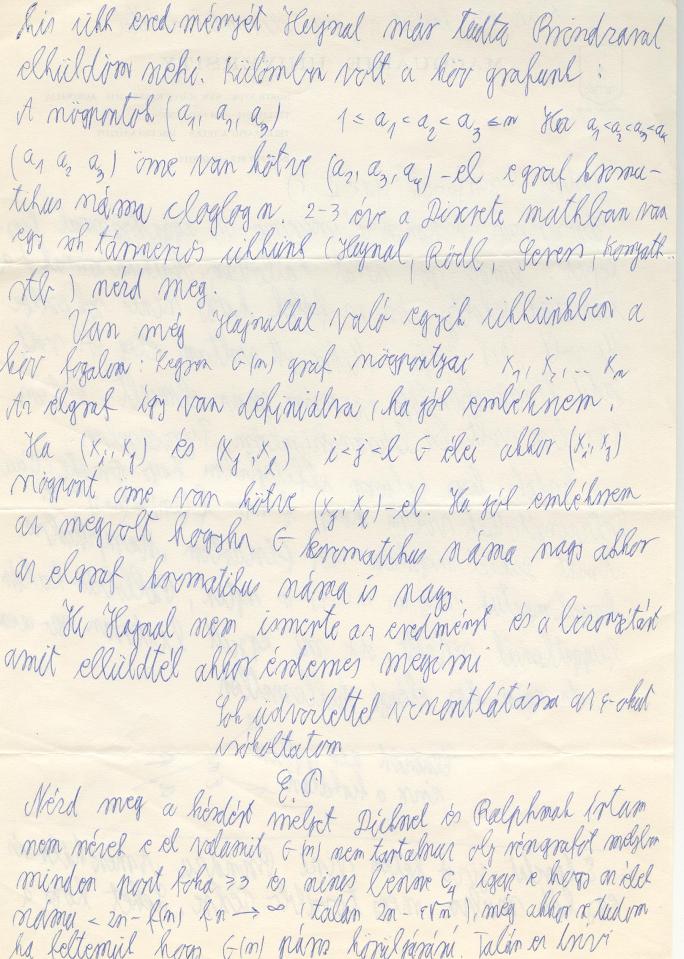 kis cikk eredményét Hajnal már tudta
elküldöm neki. Külömben volt a köv grafunk :
A szögpontok (a₁, a₂, a₃) 1 ≤ a₁ < a₂ < a₃ ≤ n Ha a₁<a₂<a₃<a₄
(a₁ a₂ a₃) össze van kötve (a₂, a₃, a₄)-el e graf kroma-
tikus száma cloglog n. 2-3 éve a Discrete mathban van
egy sok társszerzős cikkünk (Hajnal, Rödl,
stb) nézd meg.
Van még Hajnallal való egyik cikkünkben a
köv fogalom : Legyen G(n) graf szögpontjai x₁, x₂, ... xₙ
Az élgraf így van definiálva, ha jól emlékszem.
Ha (xᵢ, xⱼ) és (xⱼ, xₗ) i<j<l G élei akkor (xᵢ, xⱼ)
szögpont össze van kötve (xⱼ, xₗ)-el. Ha jól emlékszem
az megvolt hogyha G kromatikus száma nagy akkor
az élgraf kromatikus száma is nagy.
Ha Hajnal nem ismerte az eredményt és a bizonyítást
amit elküldtél akkor érdemes megírni
Sok üdvözlettel viszontlátásra az ε-okat
csókoltatom
E.P.
Nézd meg a kérdést melyet Dicknek és Ralphnak írtam
nem nézek e el valamit G(n) nem tartalmaz oly részgrafot melyben
minden pont foka ≥3 és nincs benne C₄ igaz e hogy az élek
száma < 2n - f(n) fn → ∞ (talán 2n - c√n), még akkor se tudom
ha feltesszük hogy G(n) páros körüljárású. Talán